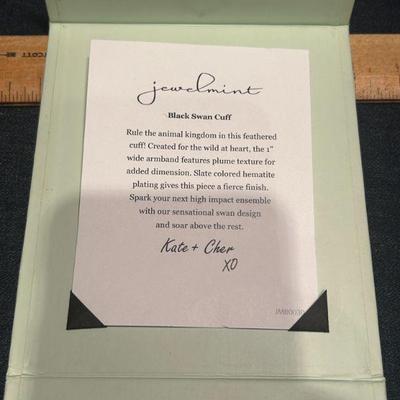 jewelmint
Black Swan Cuff
Rule the animal kingdom in this feathered
cuff! Created for the wild at heart, the 1"
wide armband features plume texture for
added dimension. Slate colored hematite
plating gives this piece a fierce finish.
Spark your next high impact ensemble
with our sensational swan design
and soar above the rest.
Kate + Cher
XO